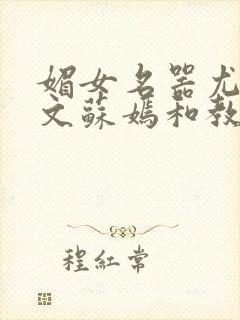 媚女名器尤
文蘇媽和教
程紅常